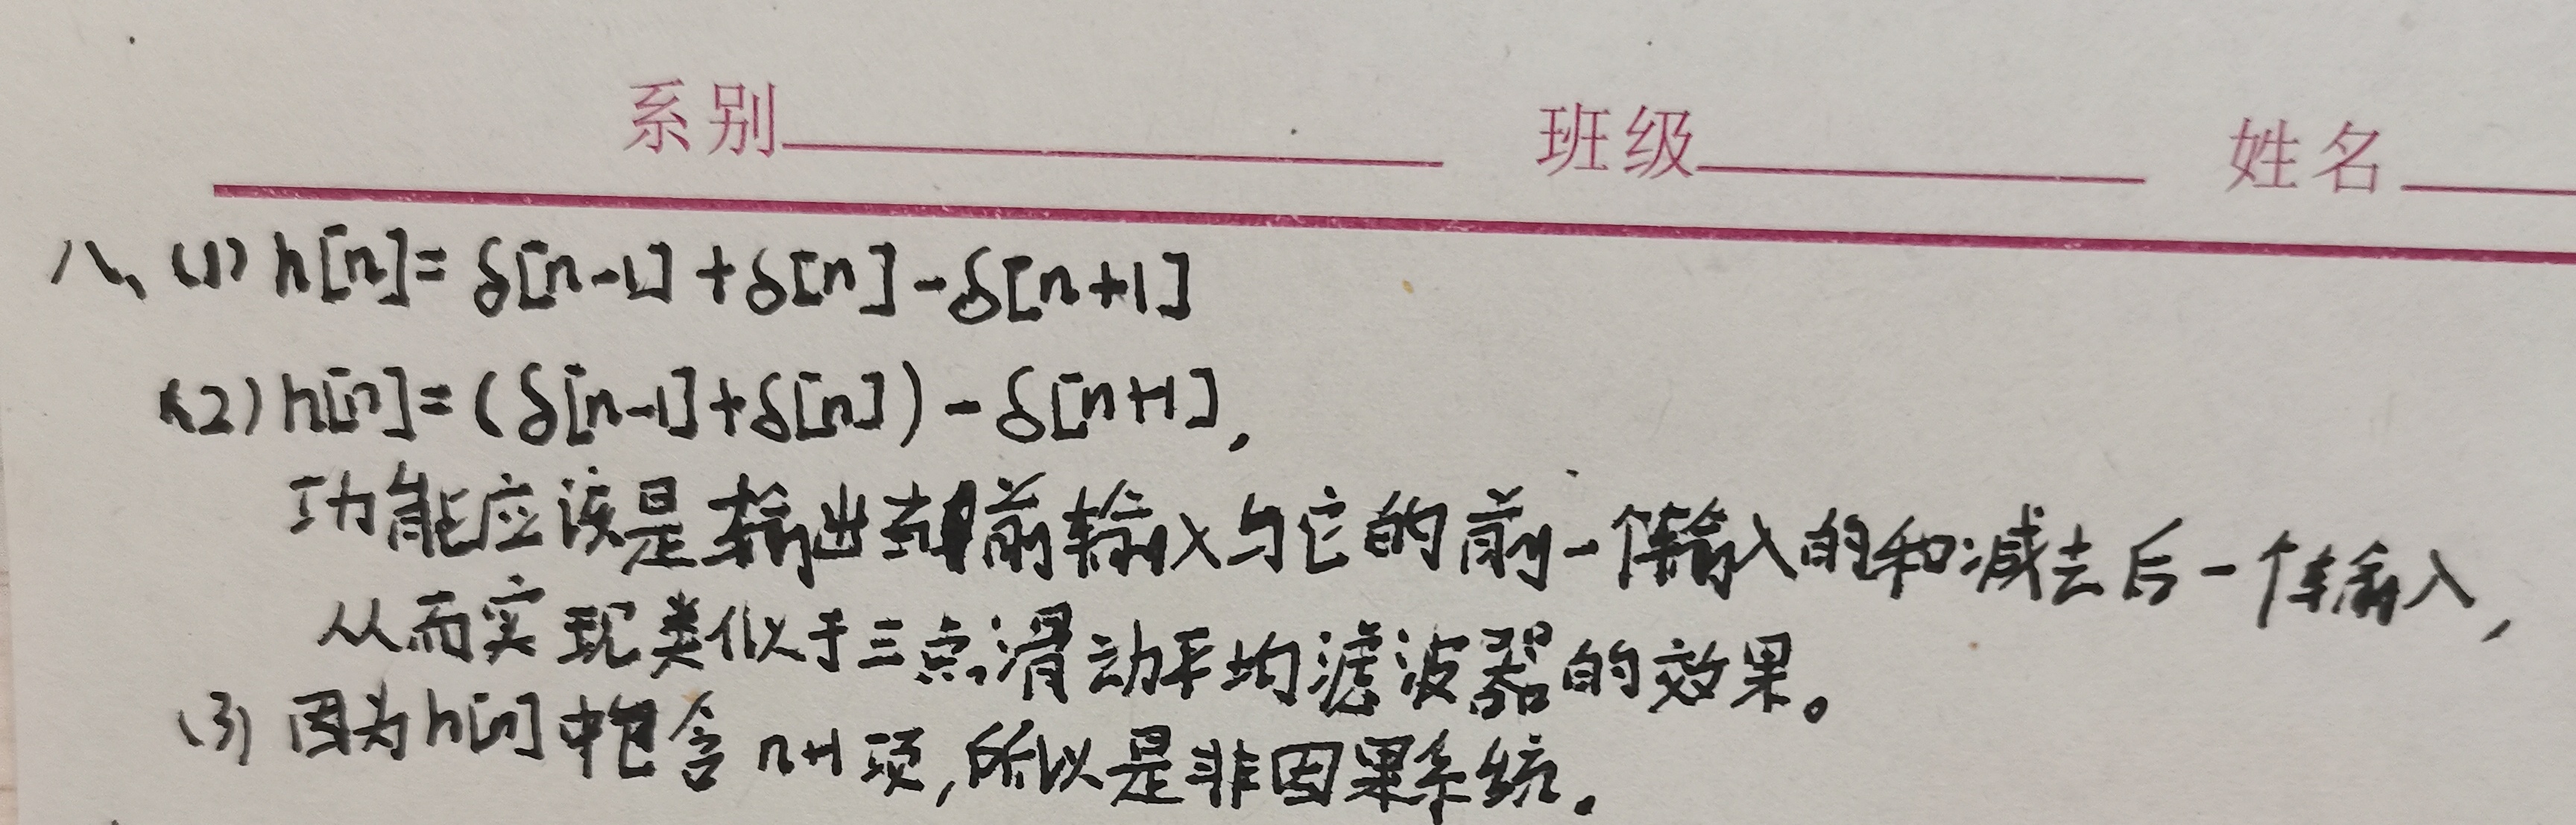 系别 班级 姓名
八、(1) h[n]= δ[n-1]+δ[n]-δ[n+1]
(2) h[n]=(δ[n-1]+δ[n])-δ[n+1],
功能应该是输出当前输入与它的前一个输入的和减去后一个输入,
从而实现类似于三点滑动平均滤波器的效果。
(3) 因为h[n]中包含n+1项,所以是非因果系统.